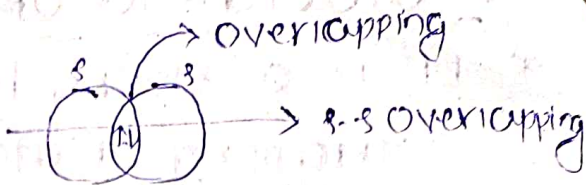 overlapping
s s
↑↓
s-s overlapping